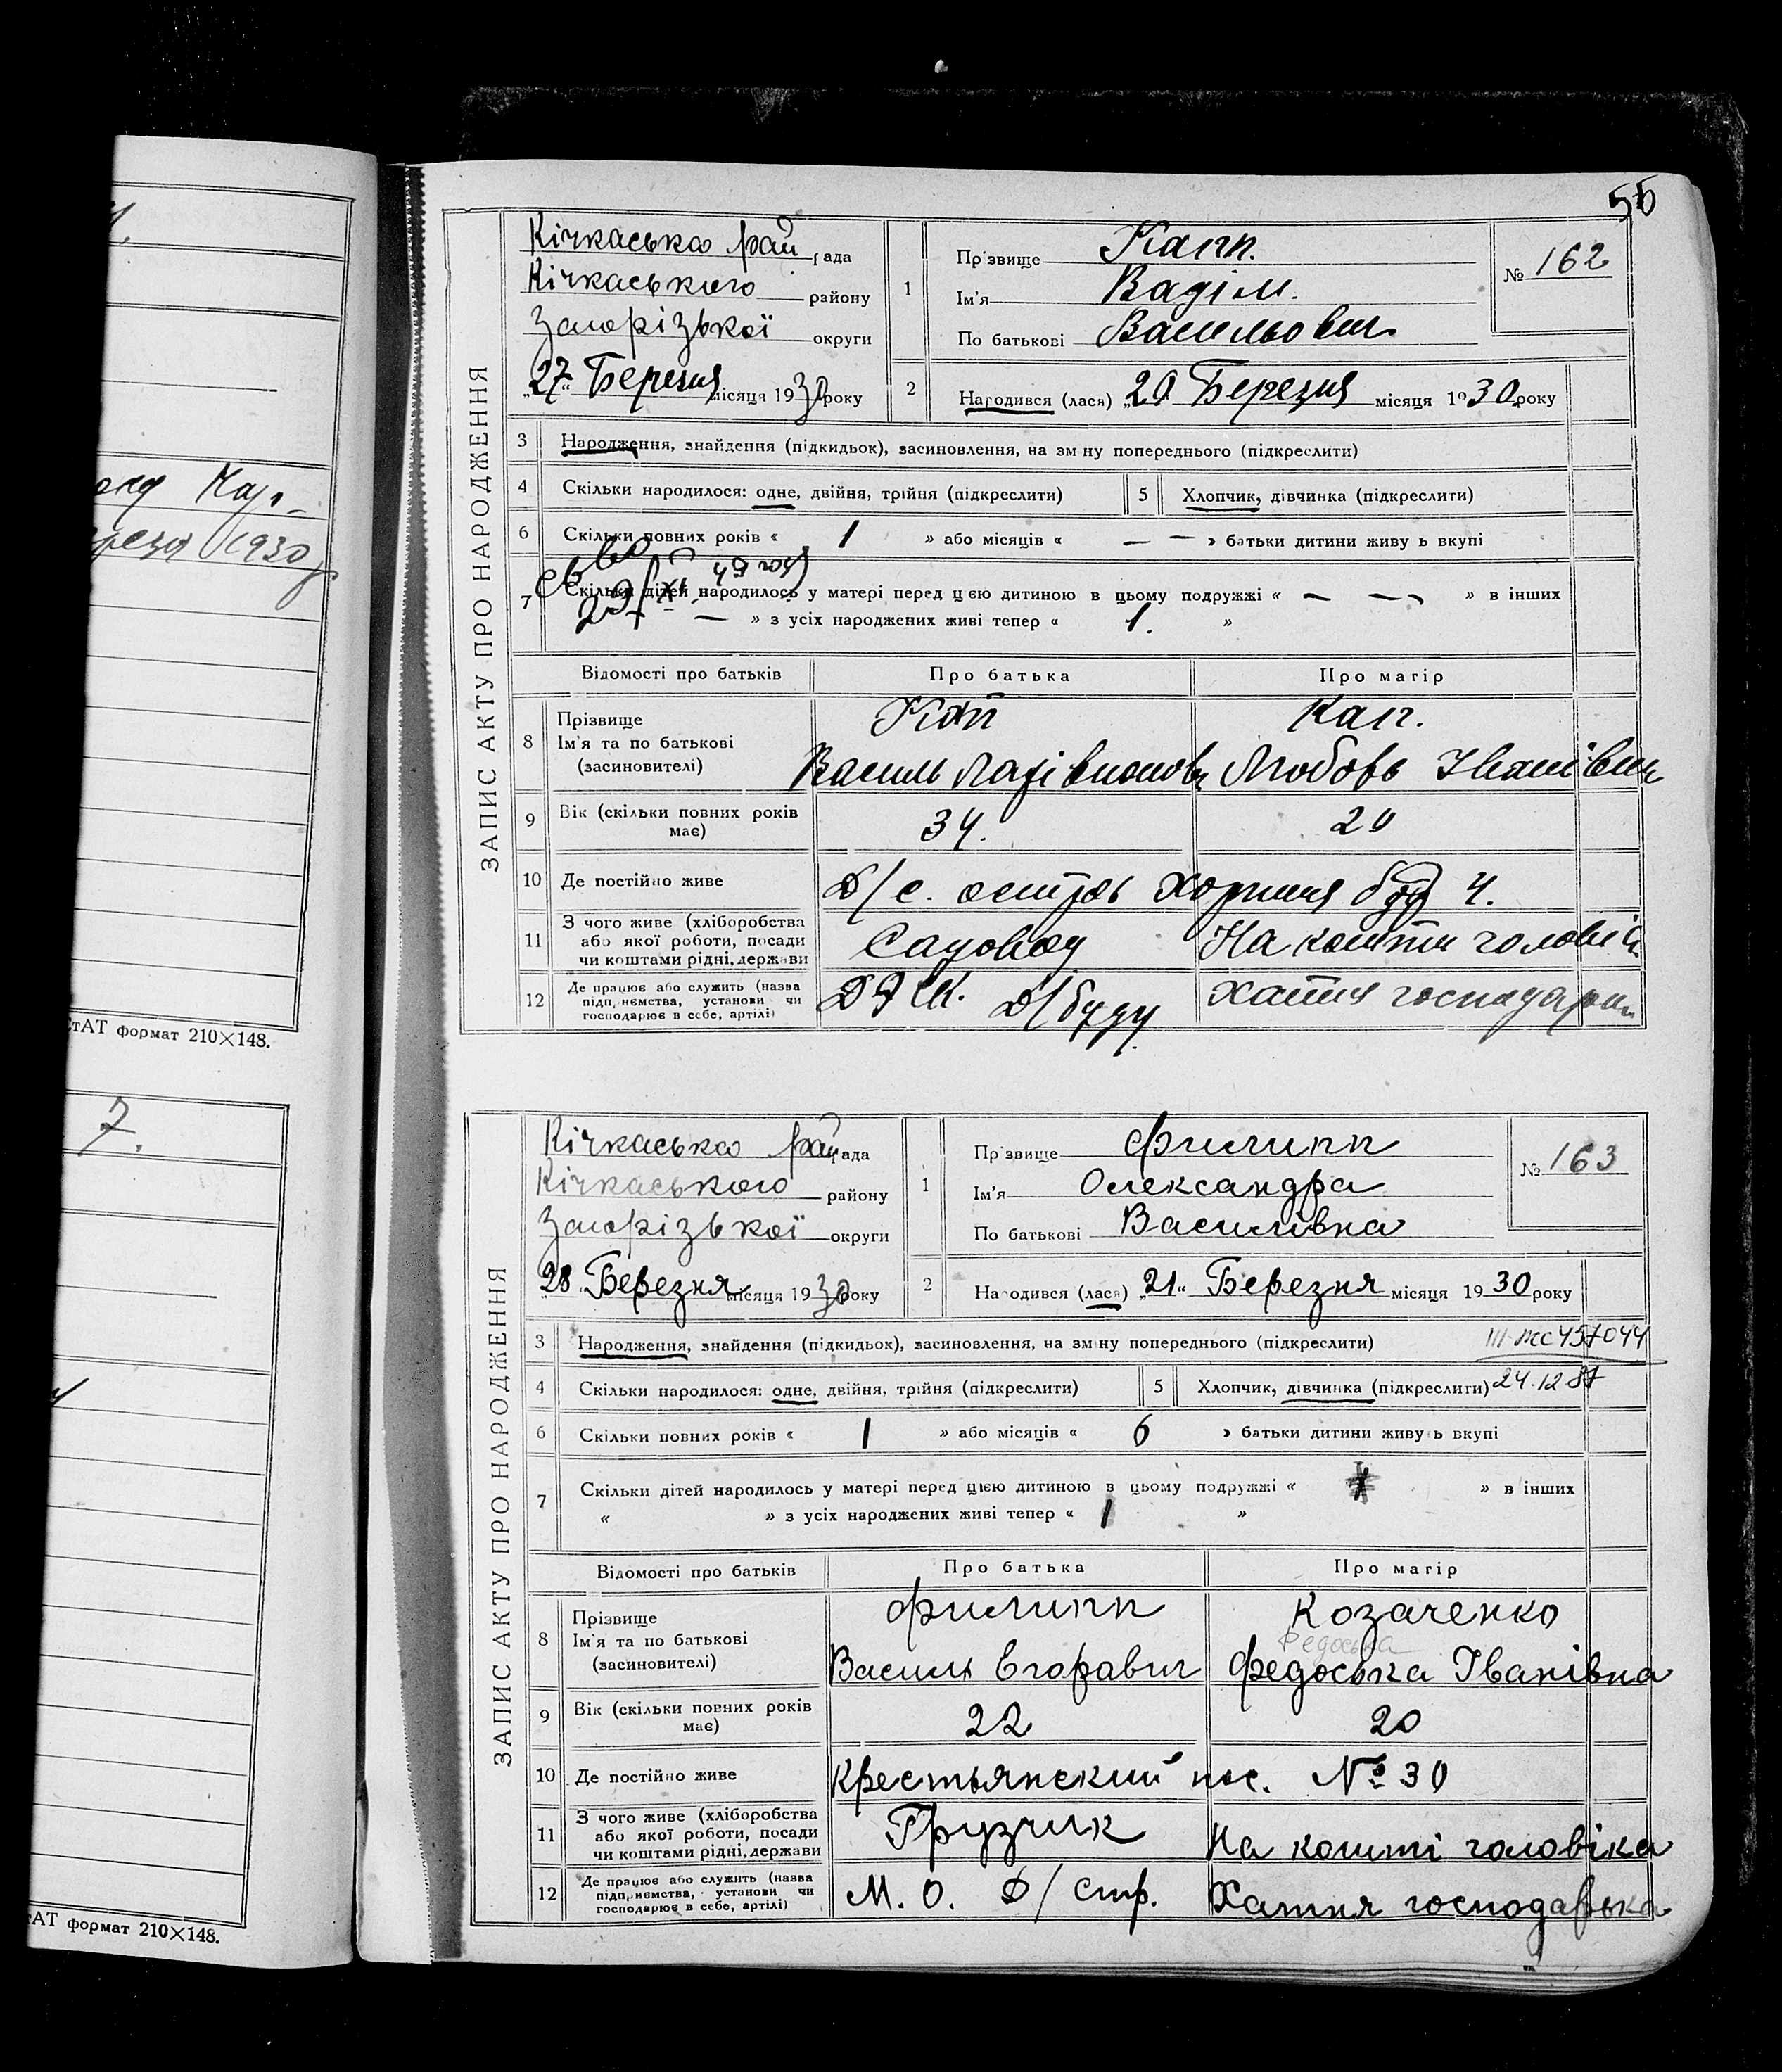 55
ЗАПИС АКТУ ПРО НАРОДЖЕННЯ
Кічкаська рай рада
Кічкаського району
Запорізької округи
„27“ Березня місяця 1930 року
1
Прізвище Капп.
Ім'я Вадім.
По батькові Васильович
№ 162
2
Народився (лася) „20 Березня місяця 1930 року
3 Народження, знайдення (підкидьок), засиновлення, на зміну попереднього (підкреслити)
4 Скільки народилося: одне, двійня, трійня (підкреслити)
5 Хлопчик, дівчинка (підкреслити)
6 Скільки повних років « 1 » або місяців « — — » батьки дитини живуть вкупі
7 Скільки дітей народилось у матері перед цією дитиною в цьому подружжі « — — » в інших
— » з усіх народжених живі тепер « 1. »
Відомості про батьків Про батька Про матір
8 Прізвище
Ім'я та по батькові
(засиновителі)
Капп Капп.
Василь Любовь Іванівна
9 Вік (скільки повних років має) 34. 20
10 Де постійно живе Д/с. остров Хортиця буд 4.
11 З чого живе (хліборобства або якої роботи, посади чи коштами рідні, держави
Садовод На кошти чоловіка
12 Де працює або служить (назва підприємства, установи чи господарює в себе, артілі)
Д/буду Хатня господарка
ЗАПИС АКТУ ПРО НАРОДЖЕННЯ
Кічкаська рай рада
Кічкаського району
Запорізької округи
„28 Березня місяця 1930 року
1
Прізвище Филипп
Ім'я Олександра
По батькові Василівна
№ 163
2
Народився (лася) „21“ Березня місяця 1930 року
3 Народження, знайдення (підкидьок), засиновлення, на зміну попереднього (підкреслити)
III-ЖС 457044
4 Скільки народилося: одне, двійня, трійня (підкреслити)
5 Хлопчик, дівчинка (підкреслити) 24.12.87
6 Скільки повних років « 1 » або місяців « 6 » батьки дитини живуть вкупі
7 Скільки дітей народилось у матері перед цією дитиною в цьому подружжі « » в інших
« » з усіх народжених живі тепер « 1 »
Відомості про батьків Про батька Про матір
8 Прізвище
Ім'я та по батькові
(засиновителі)
Филипп Козаченко
Федоська
Василь Єгоравич Федоська Іванівна
9 Вік (скільки повних років має) 22 20
10 Де постійно живе Крестьянский пос. № 30
11 З чого живе (хліборобства або якої роботи, посади чи коштами рідні, держави
Грузчик На кошті чоловіка
12 Де працює або служить (назва підприємства, установи чи господарює в себе, артілі)
М. О. Д/Стр. Хатня господарька
1930 р
тАТ формат 210×148.
7.
АТ формат 210×148.